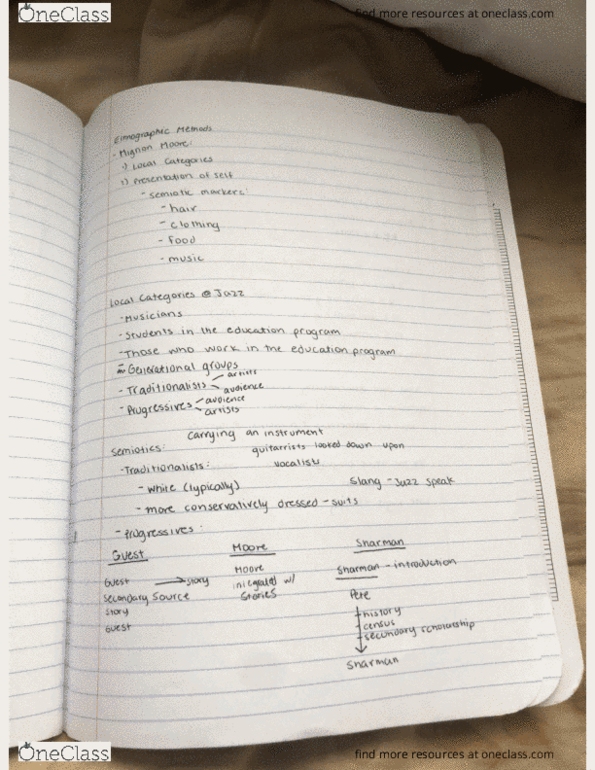 OneClass
find more resources at oneclass.com
Ethnographic Methods
- Mignon Moore:
1) Local Categories
2) Presentation of self
- semiotic markers:
- hair
- clothing
- food
- music
Local Categories @ Jazz
- Musicians
- Students in the education program
- Those who work in the education program
- Generational groups
- Traditionalists artists
audience
- Progressives audience
artists
carrying an instrument
Semiotics: guitarrists looked down upon
- Traditionalists: vocalists
- white (typically) Slang - Jazz speak
- more conservatively dressed - suits
- Progressives:
Guest Moore Sharman
Guest → story Moore Sharman - introduction
Secondary Source integrated w/ Pete
Story Stories history
Guest census
secondary scholarship
Sharman
OneClass
find more resources at oneclass.com